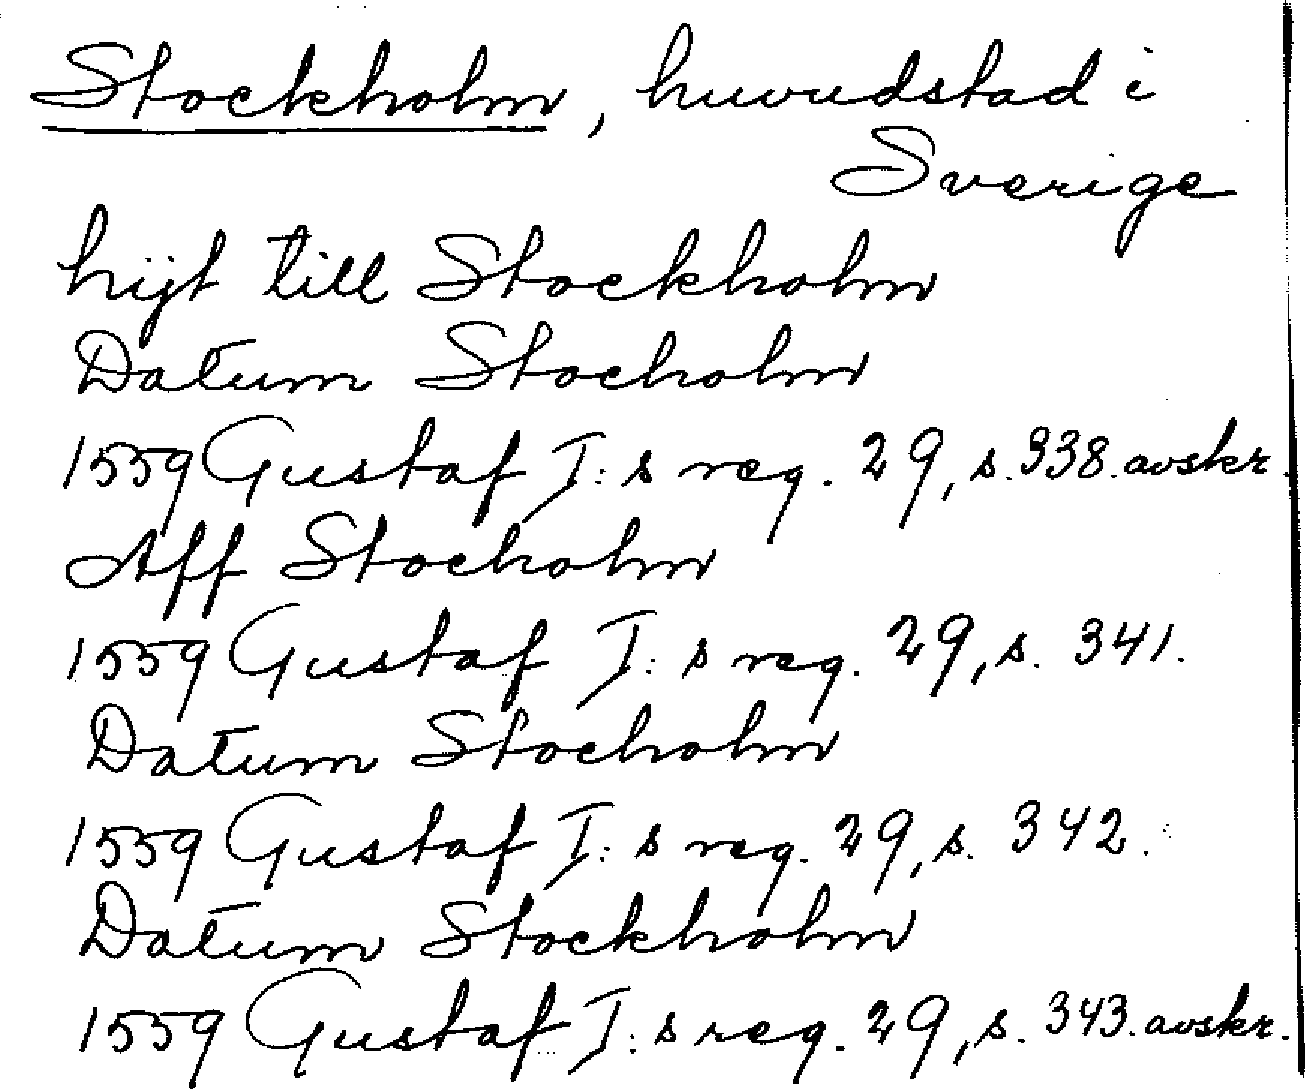 Stockholm, huvudstad i
Sverige
hijt till Stockholm
Datum Stocholm
1559 Gustaf I:s reg. 29, s. 338. avskr.
Aff Stocholm
1559 Gustaf I:s reg. 29, s. 341.
Datum Stocholm
1559 Gustaf I:s reg. 29, s. 342.
Datum Stockholm
1559 Gustaf I:s reg. 29, s. 343. avskr.